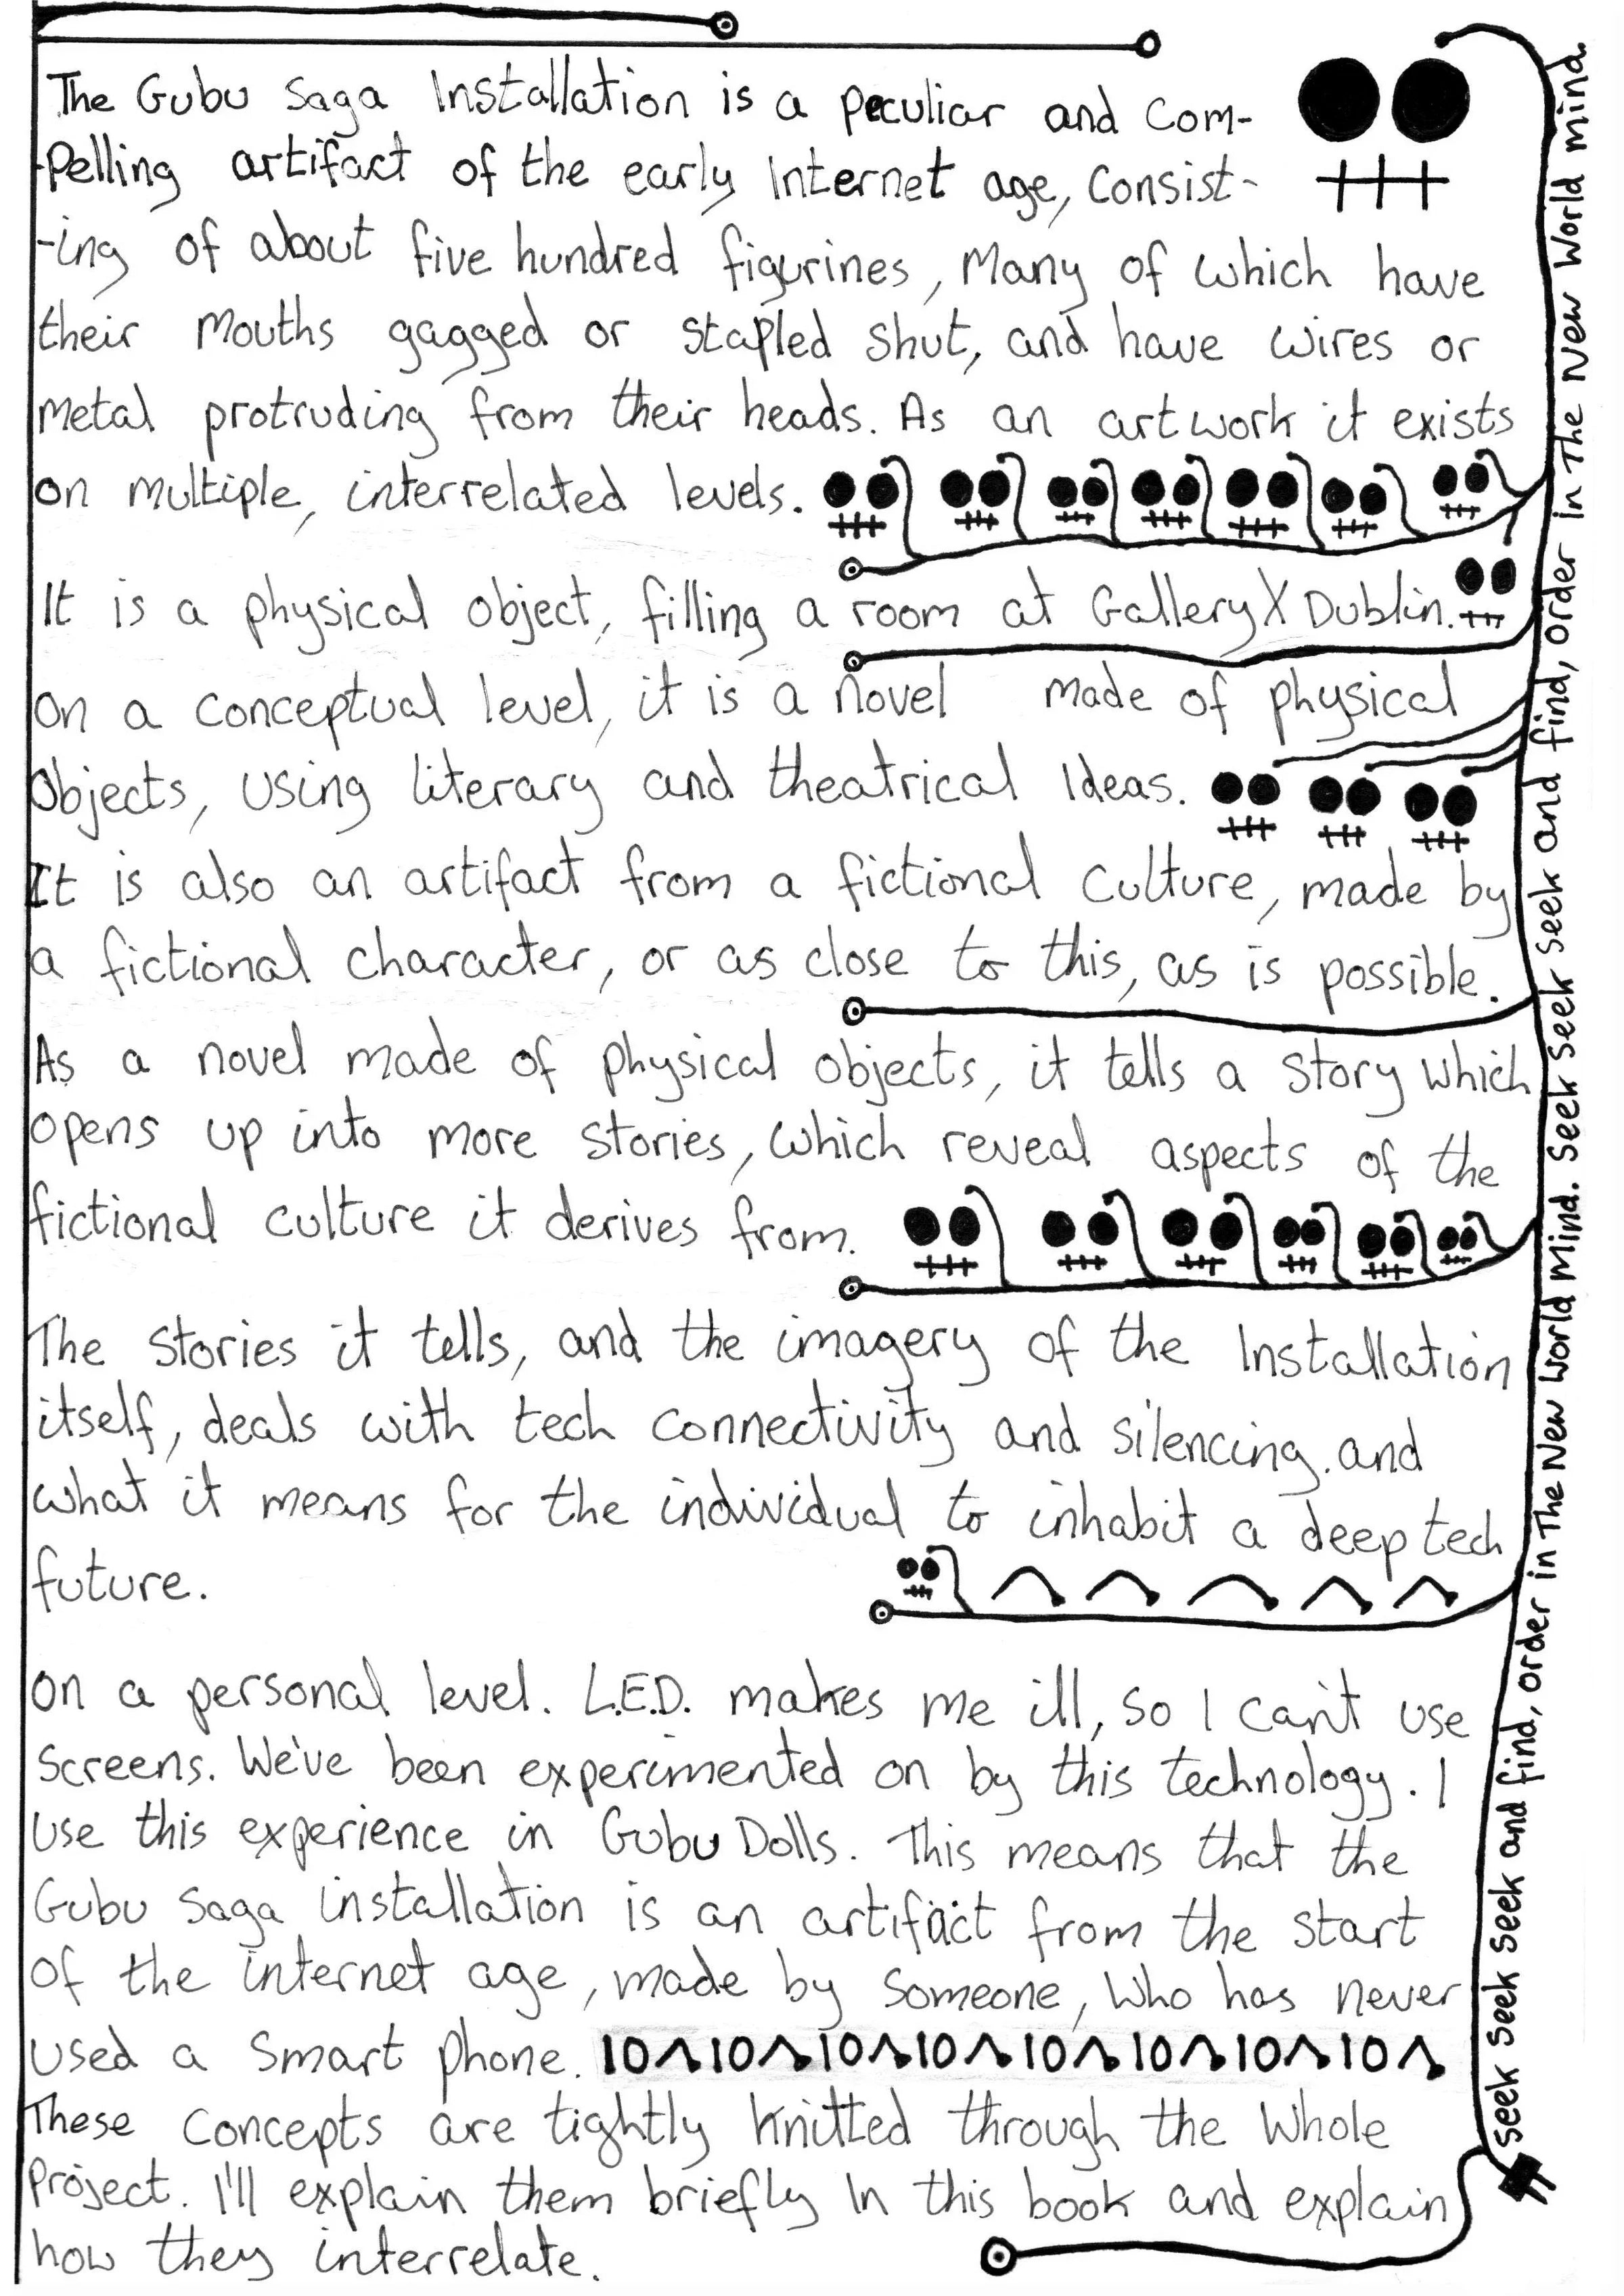 The Gubu Saga Installation is a peculiar and com-
-pelling artifact of the early Internet age, consist-
-ing of about five hundred figurines, Many of which have
their mouths gagged or stapled shut, and have wires or
metal protruding from their heads. As an artwork it exists
on multiple, interrelated levels.
It is a physical object, filling a room at Gallery X Dublin.
On a conceptual level, it is a novel made of physical
Objects, using literary and theatrical Ideas.
It is also an artifact from a fictional culture, made by
a fictional character, or as close to this, as is possible.
As a novel made of physical objects, it tells a story which
opens up into more stories, which reveal aspects of the
fictional culture it derives from.
The stories it tells, and the imagery of the Installation
itself, deals with tech connectivity and silencing. and
what it means for the individual to inhabit a deep tech
future.
On a personal level. L.E.D. makes me ill, so I can't use
Screens. We've been experimented on by this technology. I
use this experience in Gubu Dolls. This means that the
Gubu Saga installation is an artifact from the start
of the internet age, made by someone, who has never
used a smart phone. 10 10 10 10 10 10 10 10
These concepts are tightly knitted through the whole
Project. I'll explain them briefly In this book and explain
how they interrelate.
Seek Seek Seek and find, order in The New World Mind. Seek Seek Seek and find, order in The New World Mind.